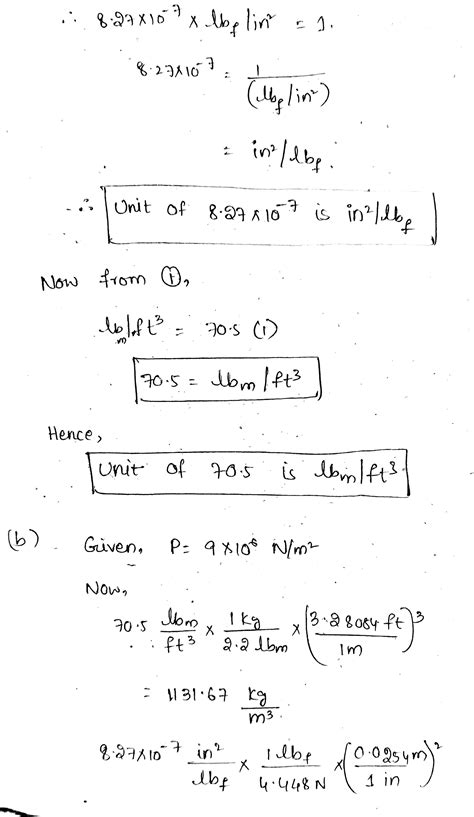 ∴ 8.27×10⁻⁷ × lb_f/in² = 1.
8.27×10⁻⁷ = 1/(lb_f/in²)
= in²/lb_f.
∴ Unit of 8.27×10⁻⁷ is in²/lb_f
Now from ①,
lb_m/ft³ = 70.5 (1)
70.5 = lbm/ft³
Hence,
Unit of 70.5 is lbm/ft³.
(b) Given, P= 9×10⁶ N/m²
Now,
70.5 lbm/ft³ × 1 kg/2.2 lbm × (3.28084 ft/1m)³
= 1131.67 kg/m³.
8.27×10⁻⁷ in²/lb_f × 1 lb_f/4.448N × (0.0254m/1 in)²